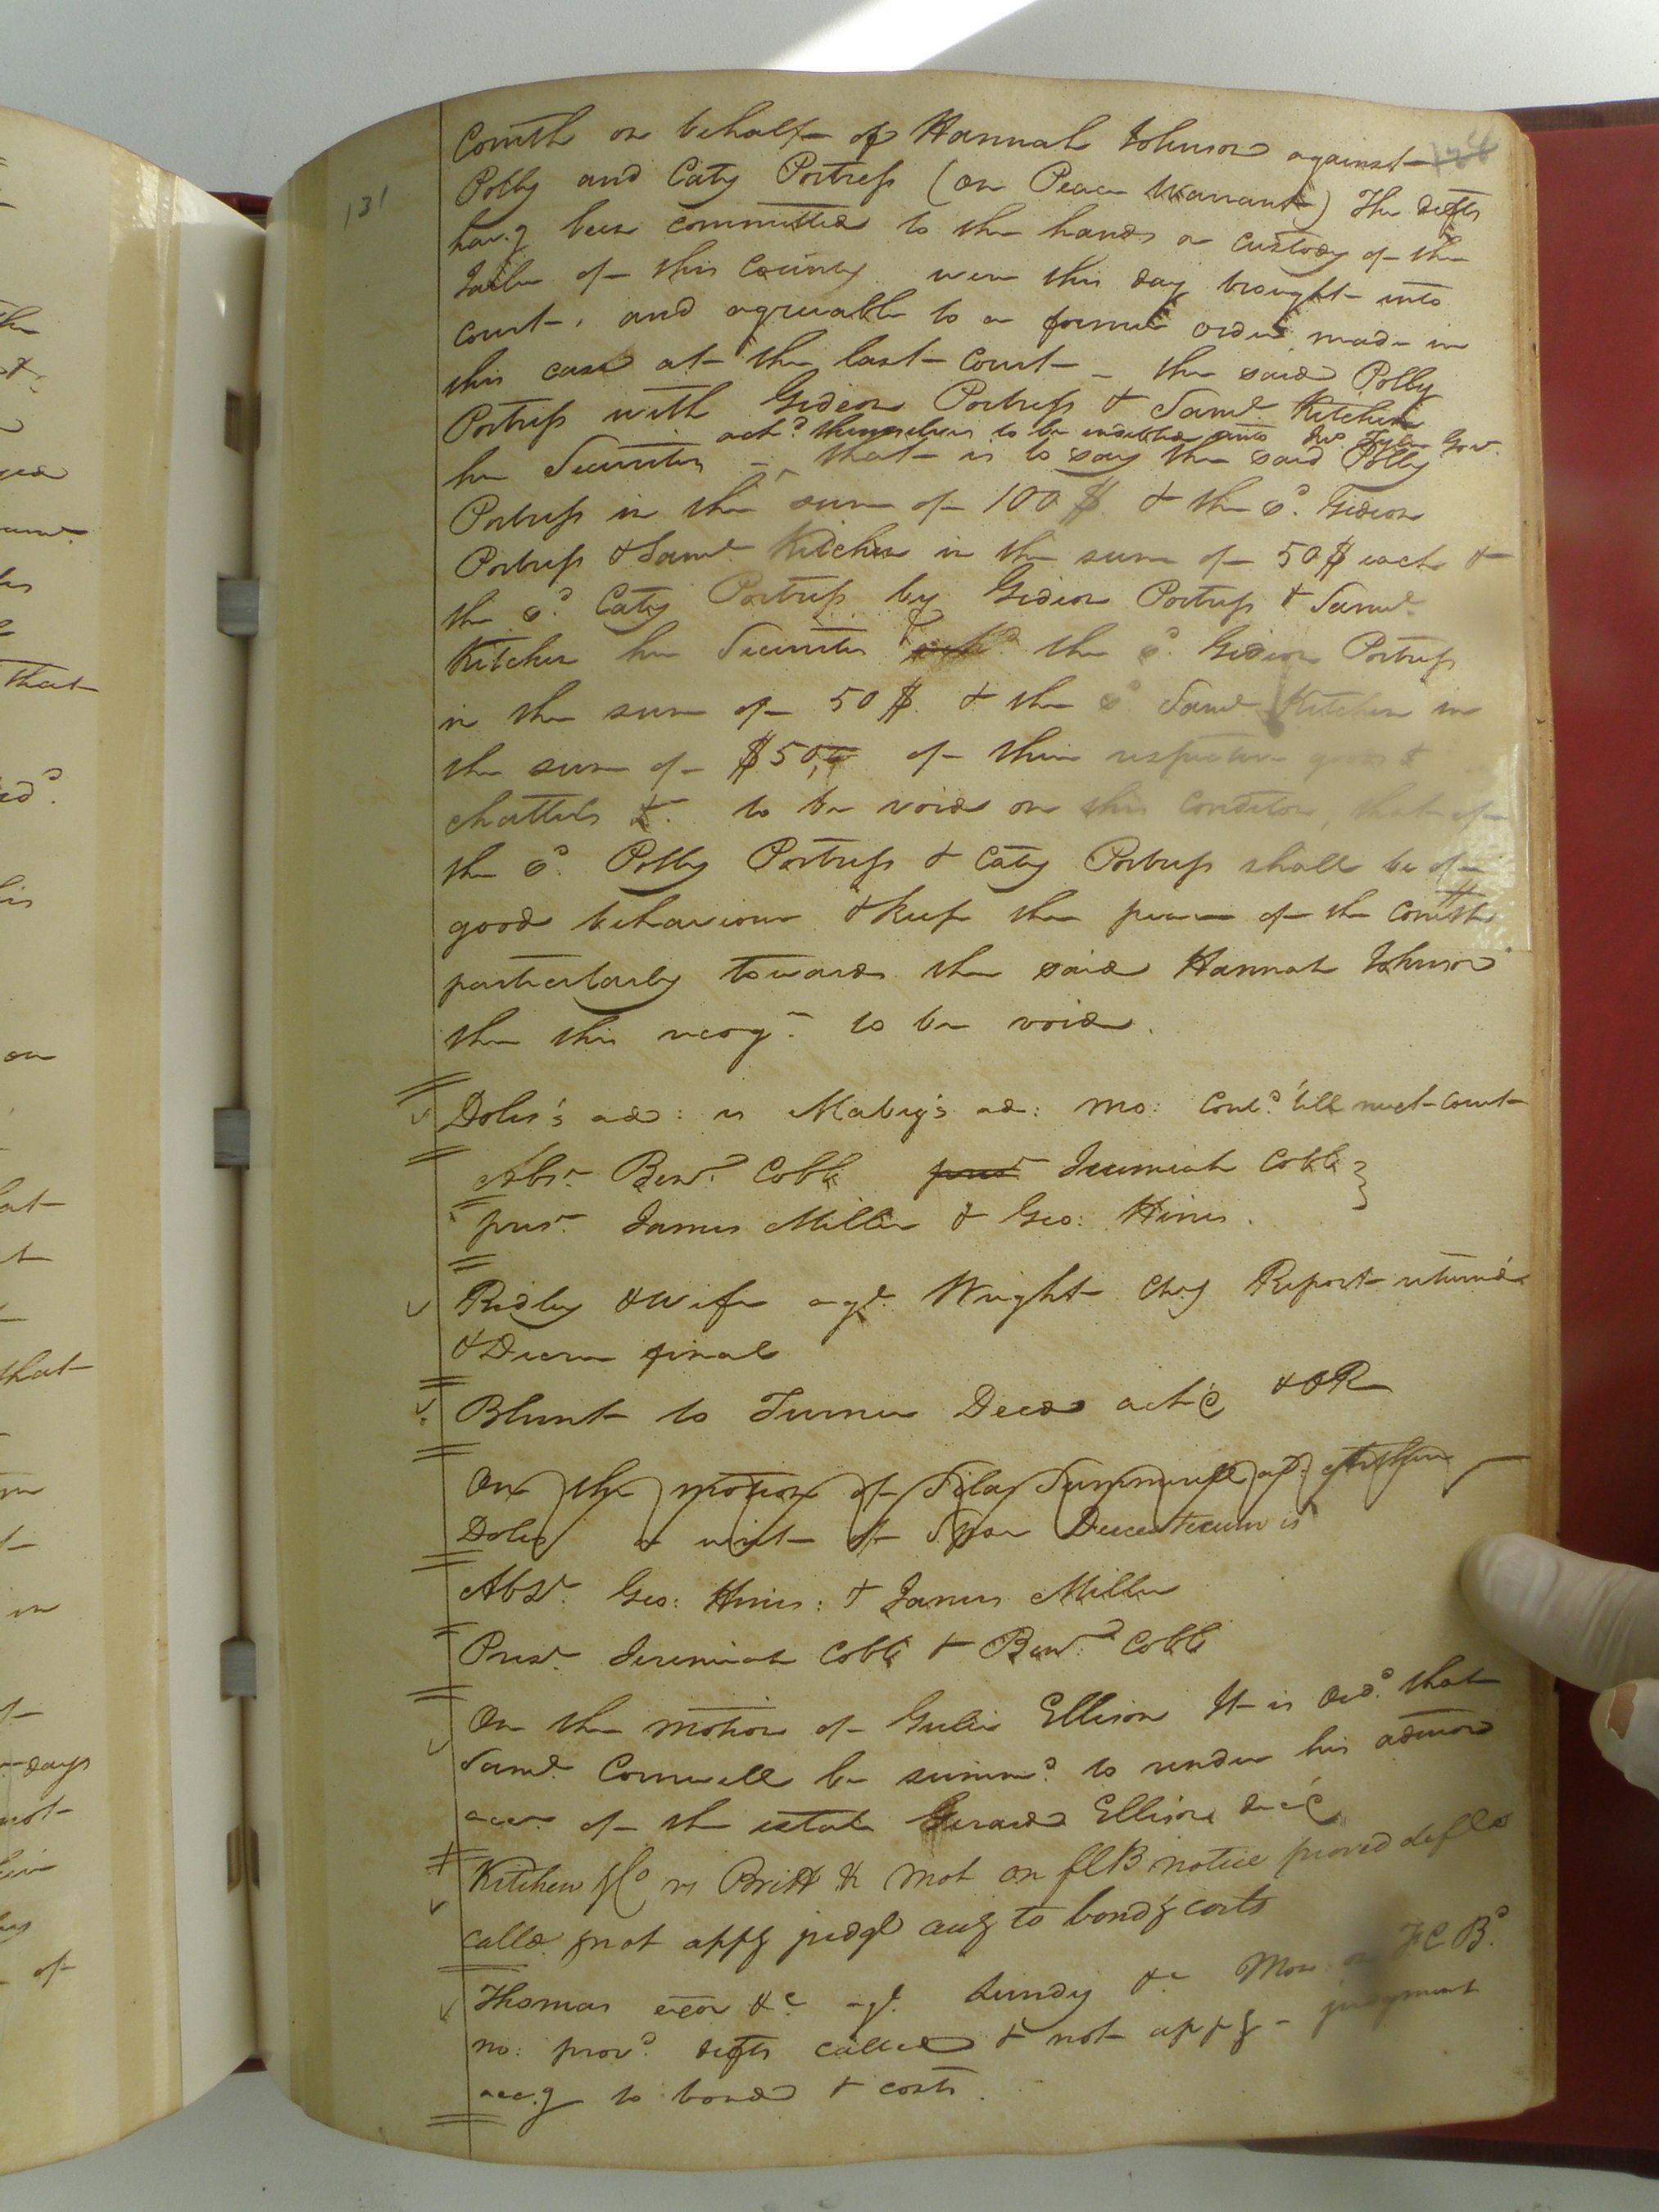 131
Comth on behalf of Hannah Johnson against
Polly and Caty Portress (on Peace Warrant) The defts
hav.g been committed to the hands or custody of the
Jailer of this County were this day brought into
court, and agreeable to a former order made in
this case at the last Court - the said Polly
Portress with Gideon Portress & Saml Kitchen
ackd. themselves to be indebted unto Jno. Tyler Gov.
her Securities - that is to say the said Polly
Portress in the sum of 100 $ & the sd. Gideon
Portress & Saml Kitchen in the sum of 50 $ each &
the sd. Caty Portress by Gideon Portress & Saml
Kitchen her Securities the sd. Gideon Portress
in the sum of 50 $. & the sd Saml Kitchen in
the sum of $50, of their respective goods &
chattels &c. to be void on this Condition, that if
the sd. Polly Portress & Caty Portress shall be of
good behaviour & keep the peace of the Comth
particularly towards the said Hannah Johnson
then this recogn. to be void.
Doles's ad: vs Mabry's ad: mo: Contd. 'till next Court
Abst. Benj. Cobb prest Jeremiah Cobb
prest. James Miller & Geo: Hines.
Ridley & Wife agt. Wright Chy Report returnd
& Decree final
Blunt to Turner Deed ack'd & OR
On the motion of Silas Summerell
Doles a writ of
Abst. Geo: Hines: & James Miller
Prest. Jeremiah Cobb & Benj. Cobb
On the motion of Ellison It is Ord. that
Saml. Cornwell be summd. to render his admon
acct. of the estate Gerard Ellison dec'd
Kitchen & Co vs Britt &c mot on FCB notice proved defts
calld & not appg judgt accg to bond & costs
Thomas exor &c. agt. Lundy &c Mon. on FC Bd.
no: provd. defts called & not appg - judgment
acc.g to bond & costs.